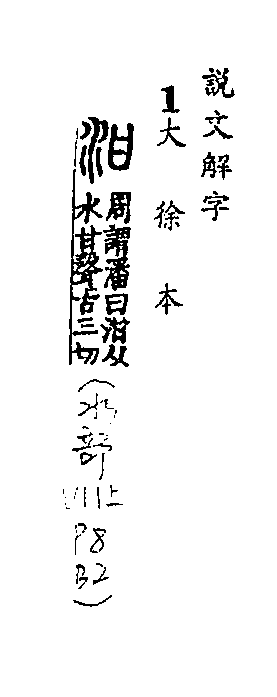 説文解字
1大徐本
泔
周謂潘曰泔从
水甘聲古三切
(水部
VII上
P8
B2)